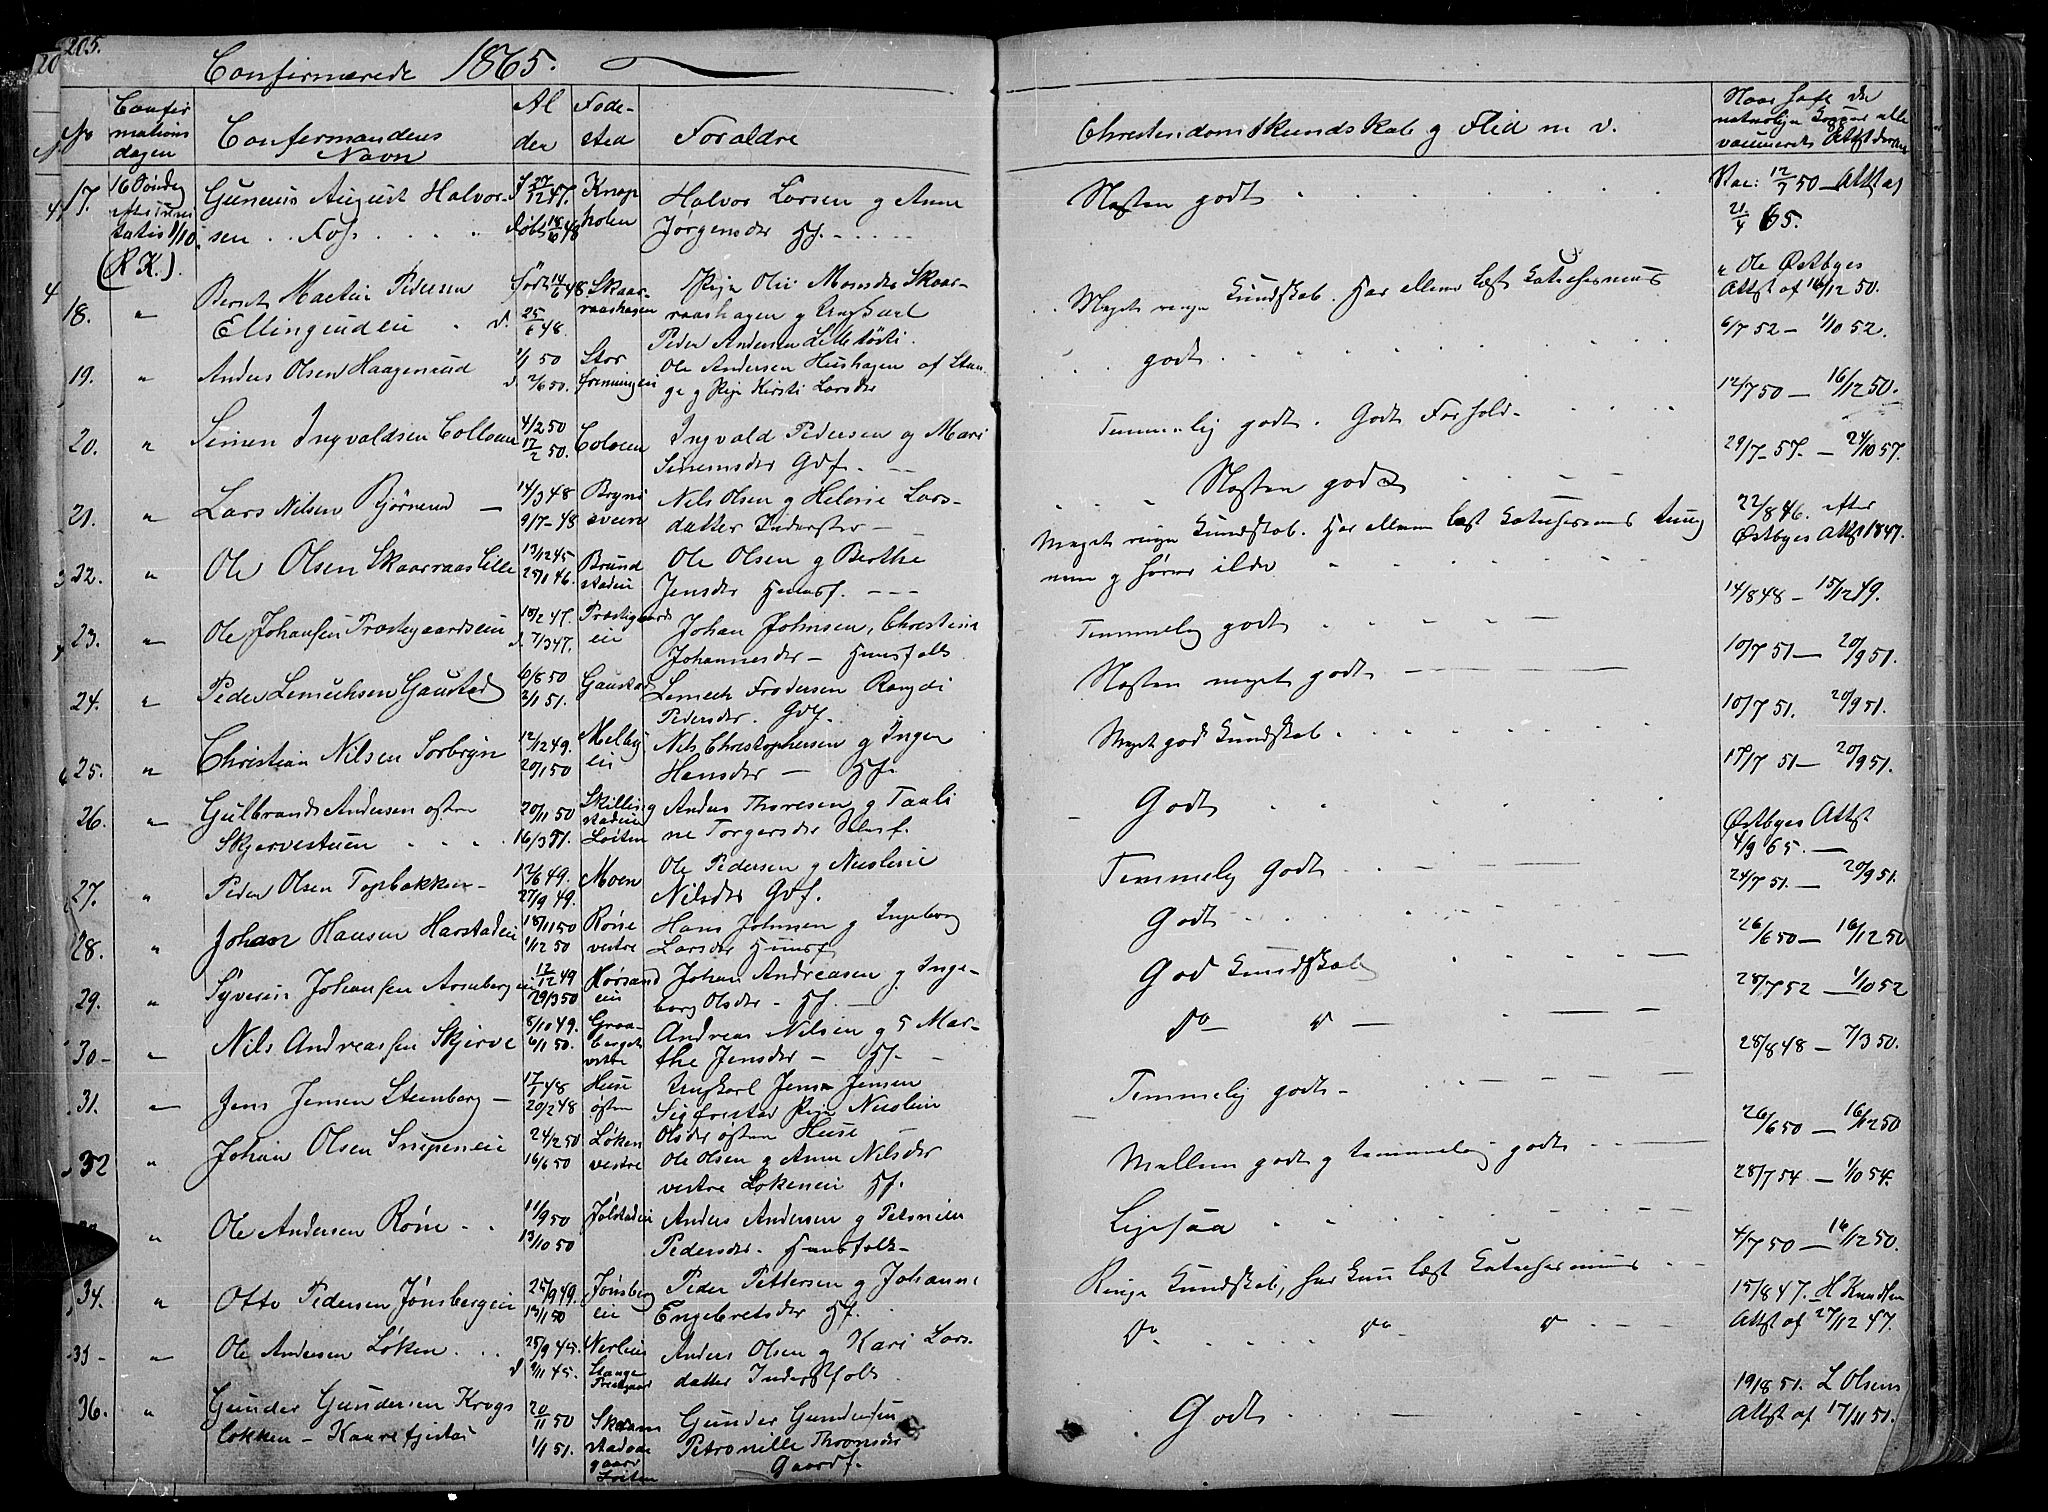 205.
Confirmerede 1865.
No
Confir
mations
dagen
Confirmandens
Navn
Al
der
Føde-
sted
Forældre
Christendomskundskab og Flid m v.
Naar haft de
naturlige Kopper eller
vaccineret. Attst derom
17. 16 Søndag
Gunerius August Halvor-
sen Fos
f 27/12 47.
døbt 18/6 48
Knap
holen
Halvor Larsen og Anne
Jørgensdr Hf.
Næsten godt
Vac: 12/7 50 — Attst af
21/4 65.
(R K.).
18. " Bernt Martin Pedersen
Ellingsudeie
født 14/6 48
d. 25/6 48.
Skaar-
raashagen
Pige Oliv Monsdr Skaar-
raashagen og Ungkarl
Peder Andersen
Meget ringe Kundskab. Har allene læst Katechesmus
Ole Østbyes
Attst af 16/12 50.
19. " Anders Olsen Haagensrud
2/1 50
d. 2/6 50.
Stor
grenningen
Ole Andersen Hushagen af Stan-
ge og Pige Kirsti Larsdr
godt
6/7 52 — 1/10 52.
20. " Simen Ingvaldsen Colloen
4/2 50
17/2 50.
Coloen
Ingvald Pedersen og Mari
Simensdr Gdf.
Temmelig godt. Godt Forhold.
12/7 50 — 16/12 50.
21. " Lars Nilsen Bjørnerud
14/3 48
9/7 48
Bryni
sveen
Nils Olsen og Helene Lars-
datter Inderster
Næsten godt
29/7 57. — 24/10 57.
22. " Ole Olsen Skaarraaslille
13/12 45
25/1 46.
Brund
stadeie
Ole Olsen og Berthe
Jensdr Huusf.
Meget ringe Kundskab. Har allene læst Katechesmus tung
nem og hører ilde
22/8 46. efter
Østbyes Attst 1847.
23. " Ole Johansen Præstegaardseie
18/2 47.
d. 7/3 47.
Præstegaards
eie
Johan Johnsen, Christine
Johannesdr — Huusfolk
Temmelig godt
14/8 48 — 15/12 49.
24. " Peder Lemechsen Gaustad
6/8 50
2/1 51.
Gaustad
Lemech Frodersen Rangdi
Pedersdr. Gdf.
Næsten meget godt
10/7 51 — 20/9 51.
25. " Christian Nilsen Sorbryn
12/12 49.
20/1 50
Melby
eie
Nils Christophersen og Inger
Hansdr — Hf.
Meget god Kundskab
10/7 51. 20/9 51.
26. " Gulbrand Andersen østre
Skjervestuen
20/11 50
16/3 51.
Skilling
stadeie
Løiten
Anders Thoresen og Pauli
ne Torgersdr
Godt
17/7 51 — 20/9 51.
27. " Peder Olsen Topbakken
12/6 49.
27/9 49.
Moen
Ole Pedersen og Nicoline
Nilsdr Gdf.
Temmelig godt
Østbyes Attst
4/9 65.
28. " Johan Hansen Harstadeie
18/11 50
1/12 50
Røise
vestre
Hans Johnsen og Ingeborg
Larsdr Huusf
Godt
24/7 51 — 20/9 51.
29. " Syverin Johansen Arnbergeie
12/12 49
29/3 50
Hørsand
eie
Johan Andreasen og Inge-
borg Olsdr — Hf.
God Kundskab
26/6 50 — 16/12 50
30. " Nils Andreassen Skjerve
8/11 49.
6/1 50.
Graa-
berget
vestre
Andreas Nilsen og Mar-
the Jensdr — Hf.
Do d
28/7 52 — 1/10 52
31. " Jens Jensen Stenberg
17/1 48
20/2 48
Huse
østen
Ungkarl Jens Jensen
Sigfrestad Pige Nicoline
Olsdr østen Huse
Temmelig godt
28/8 48 — 7/3 50.
32 " Johan Olsen Snipeneie
24/2 50
16/6 50
Løken
vestre
Ole Olsen og Anne Nilsdr
vestre Løkeneie Hf.
Mellem godt og temmelig godt
26/6 50 — 16/12 50
" Ole Andersen Røne
11/9 50
13/10 50
Jølstadeie
Anders Andersen og Petronille
Pedersdr. Huusfolk
Ligesaa
28/7 54 — 1/10 54.
34. " Otto Pedersen Jønsbergeie
25/9 49.
13/1 50
Jønsberg
eie
Peder Pettersen og Johanne
Engebretsdr Hf.
Ringe Kundskab, har kun læst Katechesmus
4/7 50 — 16/12 50.
35 " Ole Andersen Løken
25/9 45.
d 9/11 45.
Stange
Præstgaar
Anders Olsen og Kari Lars-
datter Inderstfolk
Do Do d
15/8 47. H Knudsen
Attst af 27/12 47.
36. " Gunder Gundersen Krogs
løkken — Kaarefjestad
20/11 50
1/1 51.
gaard
Løiten
Gunder Gundersen
Petronille Thronsdr
Gaardf.
Godt
19/8 51. L Olsens
Attst af 17/11 51.